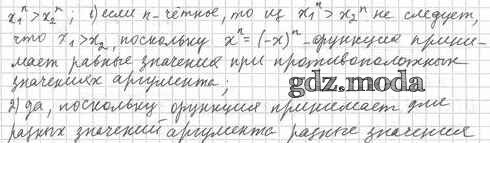 x₁ⁿ > x₂ⁿ; 1) если n - чётное, то из x₁ⁿ > x₂ⁿ не следует,
что x₁ > x₂, поскольку xⁿ = (-x)ⁿ - функция прини-
мает равные значения при противоположных
значениях аргумента;
gdz.moda
2) да, поскольку функция принимает для
разных значений аргумента разные значения